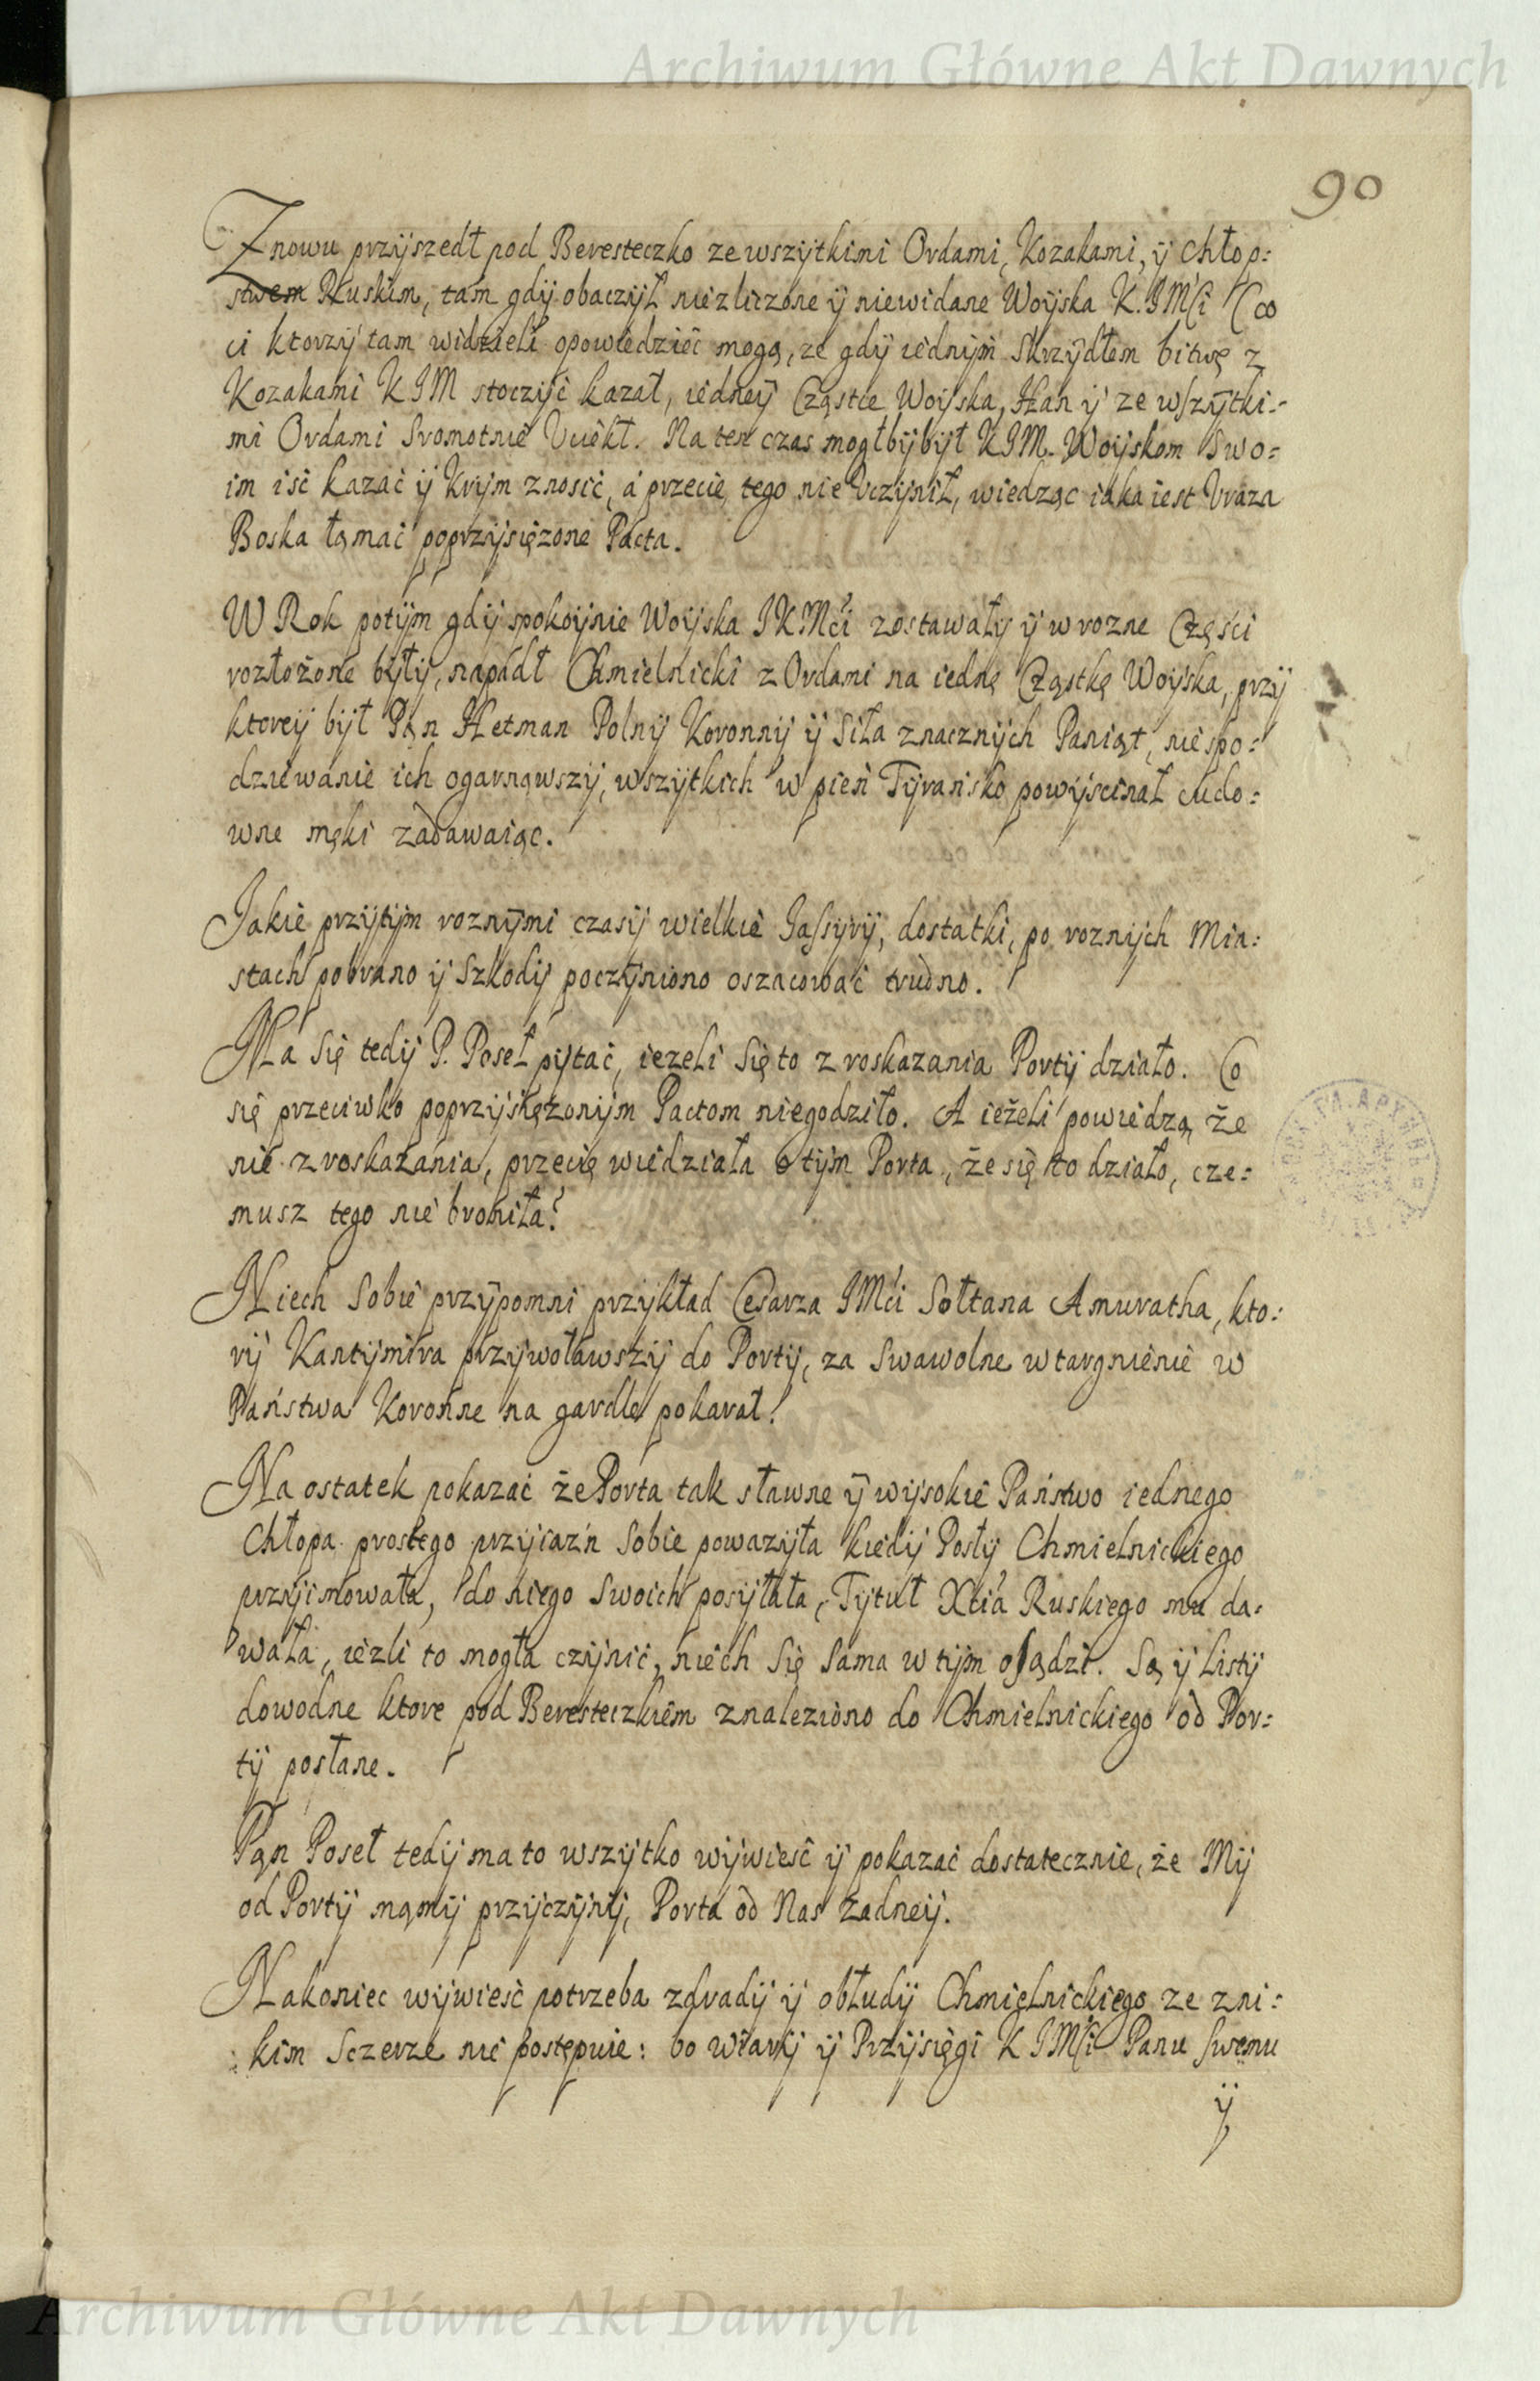 Archiwum Główne Akt Dawnych
90
Znowu przyszedł pod Beresteczko ze wszytkimi Ordami, Kozakami, ÿ Chłop:
stwem Ruskim, tam gdy obaczył niezliczone ÿ niewidane Woyska K. JMści (co
ci ktorzy tam widzieli opowiedzieć mogą, ze gdy iednym Skrzydłem bitwę z
Kozakami KJM stoczyć kazał, iedney Cząstce Woyska, Han ÿ ze wszytki:
mi Ordami Sromotnie Uciekł. Na ten czas mogłby był KJM. Woyskom Swo:
im iść kazać ÿ Krym znosić, á przecie tego nie Uczynił, wiedząc iaka iest Uraza
Boska łamać poprzysiężone Pacta.
W Rok potym gdy spokoynie Woyska JKMći zostawały ÿ w rozne Części
rozłożone były, napadł Chmielnicki z Ordami na iednę Cząstkę Woyska, przy
ktorey był Pan Hetman Polny Koronny ÿ Siła znacznych Paniąt, niespo:
dziewanie ich ogarnąwszy, wszytkich w pień Tyrańsko powyścinał cudo:
wne męki zadawaiąc.
Jakie przytym roznymi czasy wielkie Jassyry, dostatki, po roznych Mia:
stach pobrano ÿ Szkody poczyniono oszacować trudno.
Ma Się tedy P. Poseł pytać, iezeli Się to z roskazania Porty działo. Co
się przeciwko poprzysiężonym Pactom niegodziło. A ieżeli powiedzą że
nie z roskazania, przecię wiedziała o tym Porta, że się to działo, cze:
musz tego nie broniła?
Niech Sobie przypomni przykład Cesarza JMći Sołtana Amuratha, kto:
ry Kantymira przywoławszy do Porty, za Swawolne wtargnienie w
Państwa Koronne na gardle pokarał.
Na ostatek pokazać że Porta tak sławne ÿ wysokie Państwo iednego
Chłopa prostego przyiaźń Sobie powazyła kiedy Posły Chmielnickiego
przyimowała, do niego Swoich posyłała, Tytuł Xcia Ruskiego mu da:
wała, ieżli to mogła czynić, niech Się Sama w tym osądzi. Są ÿ Listy
dowodne ktore pod Beresteczkiem znaleziono do Chmielnickiego od Por:
ty posłane.
Pan Poseł tedy ma to wszytko wywieść ÿ pokazać dostatecznie, że My
od Porty mamy przyczyny, Porta od Nas żadney.
Nakoniec wywieść potrzeba zdrady ÿ obłudy Chmielnickiego ze zni:
: kim Sczerze nie postępuie: bo wiary ÿ Przysięgi K JMści Panu swemu
ÿ
Archiwum Główne Akt Dawnych